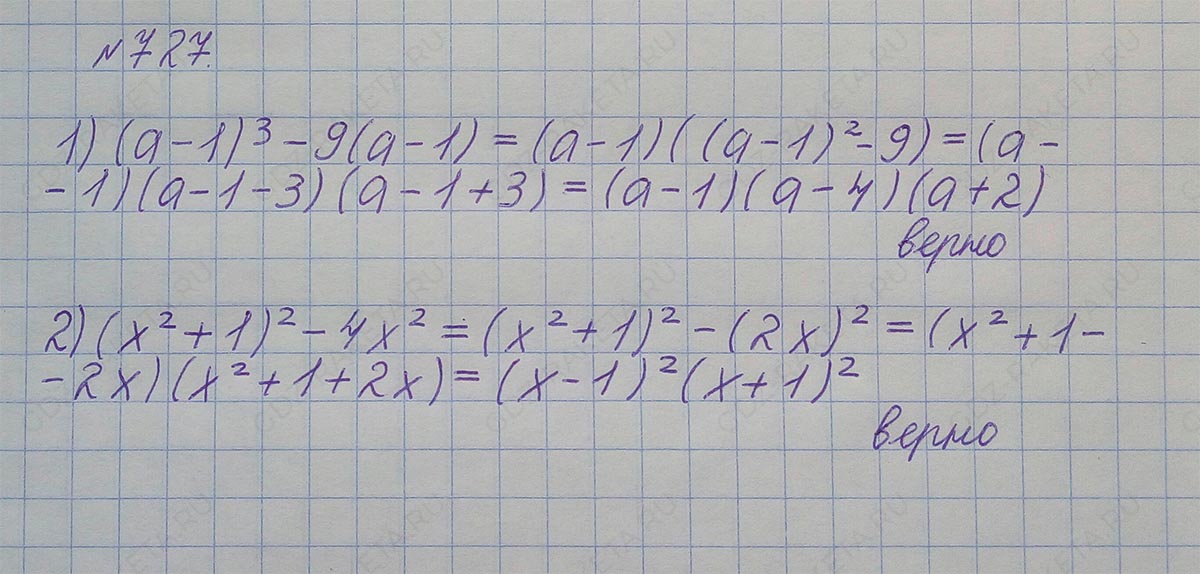 №727.
1) (a-1)³-9(a-1)=(a-1)((a-1)²-9)=(a-
-1)(a-1-3)(a-1+3)=(a-1)(a-4)(a+2)
верно
2) (x²+1)²-4x²=(x²+1)²-(2x)²=(x²+1-
-2x)(x²+1+2x)=(x-1)²(x+1)²
верно